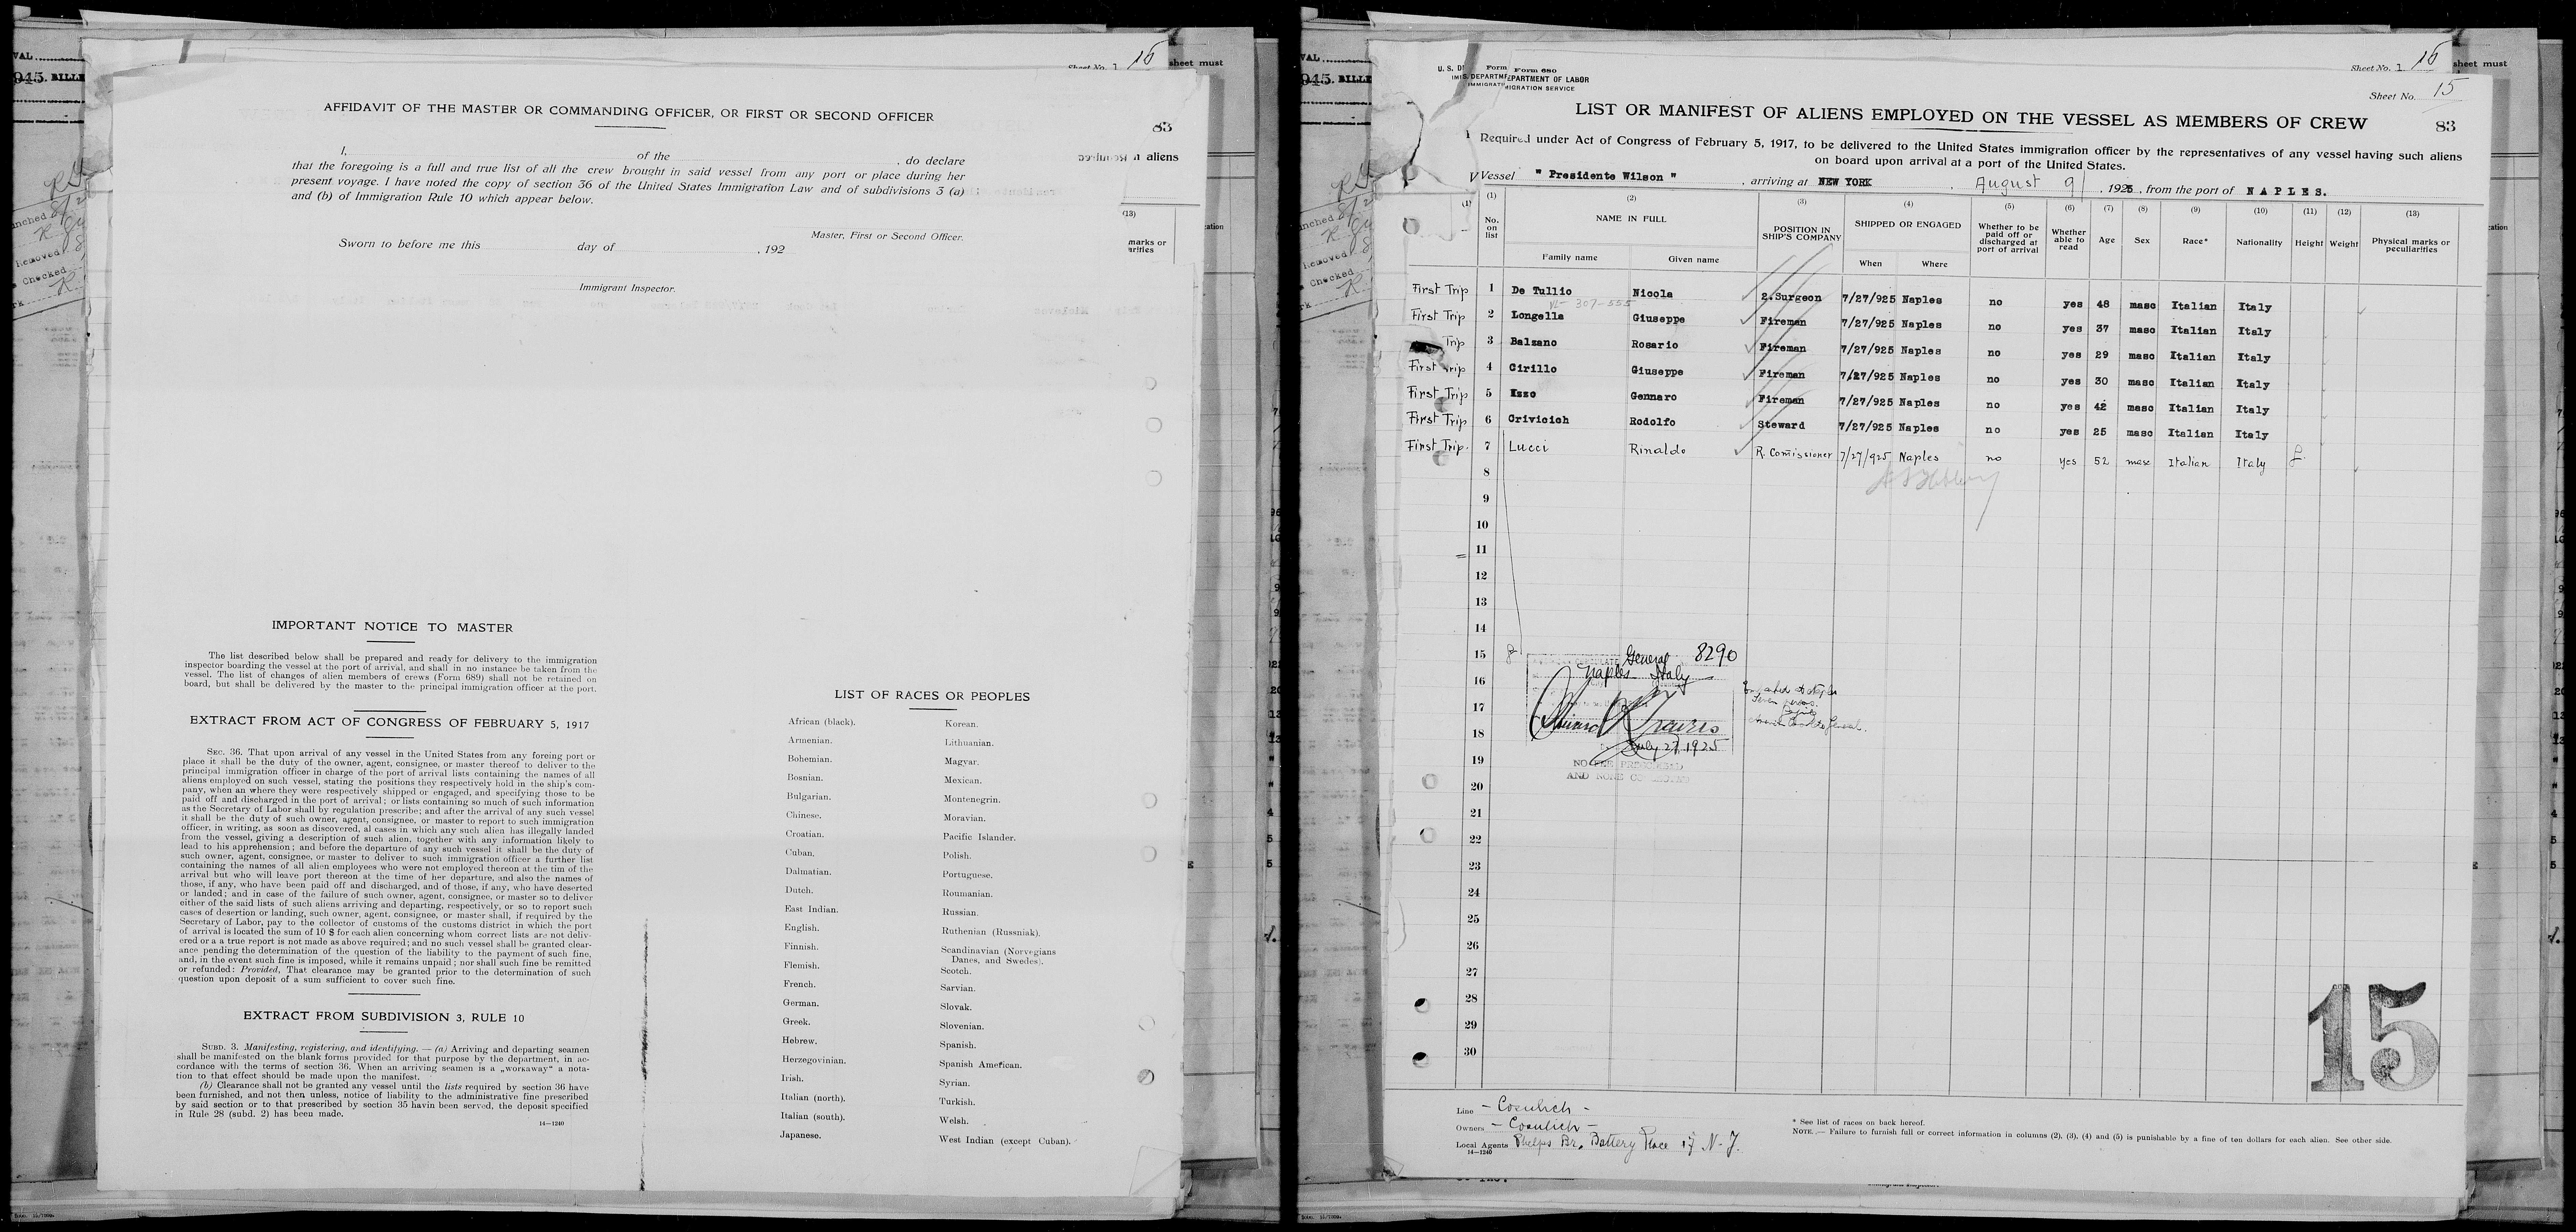 VAL
945. BILLE
Sheet No. 1 15 sheet must
AFFIDAVIT OF THE MASTER OR COMMANDING OFFICER, OR FIRST OR SECOND OFFICER
83
I, of the , do declare
that the foregoing is a full and true list of all the crew brought in said vessel from any port or place during her
present voyage. I have noted the copy of section 36 of the United States Immigration Law and of subdivisions 3 (a)
and (b) of Immigration Rule 10 which appear below.
aliens
(13)
marks or
Master, First or Second Officer.
Sworn to before me this day of , 192
Immigrant Inspector.
IMPORTANT NOTICE TO MASTER
The list described below shall be prepared and ready for delivery to the immigration
inspector boarding the vessel at the port of arrival, and shall in no instance be taken from the
vessel. The list of changes of alien members of crews (Form 689) shall not be retained on
board, but shall be delivered by the master to the principal immigration officer at the port.
EXTRACT FROM ACT OF CONGRESS OF FEBRUARY 5, 1917
SEC. 36. That upon arrival of any vessel in the United States from any foreing port or
place it shall be the duty of the owner, agent, consignee, or master thereof to deliver to the
principal immigration officer in charge of the port of arrival lists containing the names of all
aliens employed on such vessel, stating the positions they respectively hold in the ship's com-
pany, when an where they were respectively shipped or engaged, and specifying those to be
paid off and discharged in the port of arrival; or lists containing so much of such information
as the Secretary of Labor shall by regulation prescribe; and after the arrival of any such vessel
it shall be the duty of such owner, agent, consignee, or master to report to such immigration
officer, in writing, as soon as discovered, al cases in which any such alien has illegally landed
from the vessel, giving a description of such alien, together with any information likely to
lead to his apprehension; and before the departure of any such vessel it shall be the duty of
such owner, agent, consignee, or master to deliver to such immigration officer a further list
containing the names of all alien employees who were not employed thereon at the tim of the
arrival but who will leave port thereon at the time of her departure, and also the names of
those, if any, who have been paid off and discharged, and of those, if any, who have deserted
or landed; and in case of the failure of such owner, agent, consignee, or master so to deliver
either of the said lists of such aliens arriving and departing, respectively, or so to report such
cases of desertion or landing, such owner, agent, consignee, or master shall, if required by the
Secretary of Labor, pay to the collector of customs of the customs district in which the port
of arrival is located the sum of 10 $ for each alien concerning whom correct lists are not deliv-
ered or a a true report is not made as above required; and no such vessel shall be granted clear-
ance pending the determination of the question of the liability to the payment of such fine,
and, in the event such fine is imposed, while it remains unpaid; nor shall such fine be remitted
or refunded: Provided, That clearance may be granted prior to the determination of such
question upon deposit of a sum sufficient to cover such fine.
EXTRACT FROM SUBDIVISION 3, RULE 10
SUBD. 3. Manifesting, registering, and identifying. — (a) Arriving and departing seamen
shall be manifested on the blank forms provided for that purpose by the department, in ac-
cordance with the terms of section 36. When an arriving seamen is a „workaway“ a nota-
tion to that effect should be made upon the manifest.
(b) Clearance shall not be granted any vessel until the lists required by section 36 have
been furnished, and not then unless, notice of liability to the administrative fine prescribed
by said section or to that prescribed by section 35 havin been served, the deposit specified
in Rule 28 (subd. 2) has been made.
14—1240
LIST OF RACES OR PEOPLES
African (black). Korean.
Armenian. Lithuanian.
Bohemian. Magyar.
Bosnian. Mexican.
Bulgarian. Montenegrin.
Chinese. Moravian.
Croatian. Pacific Islander.
Cuban, Polish.
Dalmatian. Portuguese.
Dutch. Roumanian.
East Indian. Russian.
English. Ruthenian (Russniak).
Finnish. Scandinavian (Norvegians
Danes, and Swedes).
Flemish. Scotch.
French. Sarvian.
German. Slovak.
Greek. Slovenian.
Hebrew. Spanish.
Herzegovinian. Spanish American.
Irish. Syrian.
Italian (north). Turkish.
Italian (south). Welsh.
Japanese. West Indian (except Cuban).
VAL
945. BILLE
Sheet No. 1 15 sheet must
Form 680
DEPARTMENT OF LABOR
IMMIGRATION SERVICE
Sheet No. 15
LIST OR MANIFEST OF ALIENS EMPLOYED ON THE VESSEL AS MEMBERS OF CREW
83
Required under Act of Congress of February 5, 1917, to be delivered to the United States immigration officer by the representatives of any vessel having such aliens
on board upon arrival at a port of the United States.
Vessel " Presidente Wilson " , arriving at NEW YORK , August 9 , 1925, from the port of NAPLES.
(1) (2) (3) (4) (5) (6) (7) (8) (9) (10) (11) (12) (13)
No. on list NAME IN FULL POSITION IN SHIP'S COMPANY SHIPPED OR ENGAGED Whether to be paid off or discharged at port of arrival Whether able to read Age Sex Race* Nationality Height Weight Physical marks or peculiarities
Family name Given name When Where
First Trip 1 De Tullio Nicola 2.Surgeon 7/27/925 Naples no yes 48 masc Italian Italy
307-555
First Trip 2 Longella Giuseppe Fireman 7/27/925 Naples no yes 37 masc Italian Italy
Trip 3 Balzano Rosario Fireman 7/27/925 Naples no yes 29 masc Italian Italy
First Trip 4 Cirillo Giuseppe Fireman 7/27/925 Naples no yes 30 masc Italian Italy
First Trip 5 Izzo Gennaro Fireman 7/27/925 Naples no yes 42 masc Italian Italy
First Trip 6 Crivicich Rodolfo Steward 7/27/925 Naples no yes 25 masc Italian Italy
First Trip. 7 Lucci Rinaldo R. Comissioner 7/27/925 Naples no yes 52 masc Italian Italy
8
9
10
11
12
13
14
15 General 8290
16 Naples Italy
17
18
July 27, 1925
19 NO FEE PRESCRIBED
AND NONE COLLECTED
20
21
22
23
24
25
26
27
28
29
30
15
Line - Cosulich -
Owners - Cosulich -
Local Agents Phelps Br. Battery Place 17 N.Y.
14—1240
* See list of races on back hereof.
NOTE. — Failure to furnish full or correct information in columns (2), (3), (4) and (5) is punishable by a fine of ten dollars for each alien. See other side.